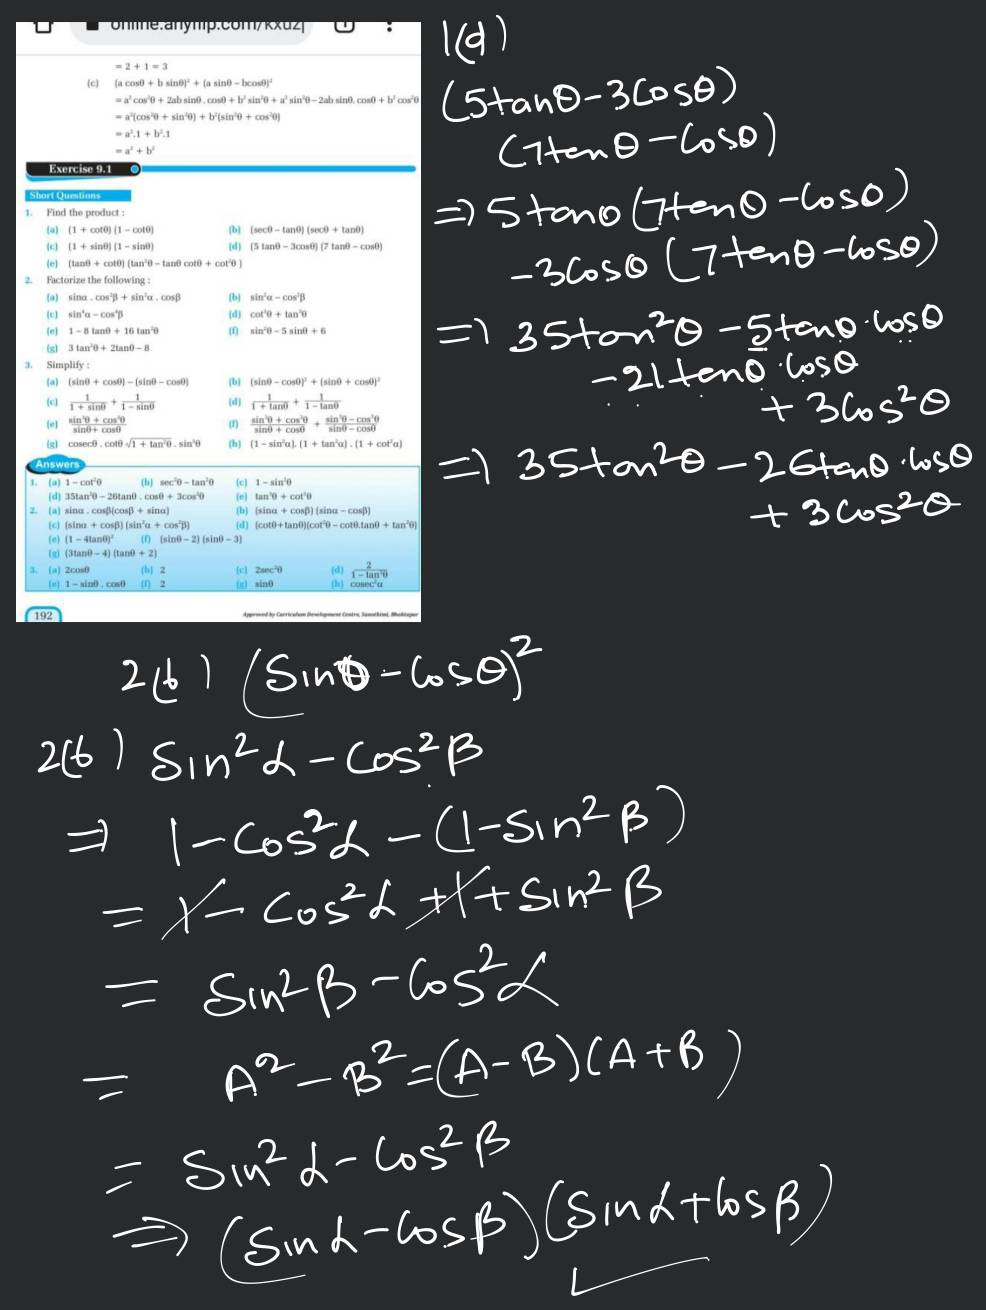 online.anyflip.com/kxuzj
= 2 + 1 = 3
(c) (a cosθ + b sinθ)² + (a sinθ – bcosθ)²
= a² cos²θ + 2ab sinθ . cosθ + b² sin²θ + a² sin²θ – 2ab sinθ. cosθ + b² cos²θ
= a²(cos²θ + sin²θ) + b²(sin²θ + cos²θ)
= a².1 + b².1
= a² + b²
Exercise 9.1
Short Questions
1. Find the product :
(a) (1 + cotθ) (1 – cotθ) (b) (secθ – tanθ) (secθ + tanθ)
(c) (1 + sinθ) (1 – sinθ) (d) (5 tanθ – 3cosθ) (7 tanθ – cosθ)
(e) (tanθ + cotθ) (tan²θ – tanθ cotθ + cot²θ )
2. Factorize the following :
(a) sinα . cos²β + sin²α . cosβ (b) sin²α – cos²β
(c) sin⁴α – cos⁴β (d) cot³θ + tan³θ
(e) 1 – 8 tanθ + 16 tan²θ (f) sin²θ – 5 sinθ + 6
(g) 3 tan²θ + 2tanθ – 8
3. Simplify :
(a) (sinθ + cosθ) – (sinθ – cosθ) (b) (sinθ – cosθ)² + (sinθ + cosθ)²
(c) 1/(1 + sinθ) + 1/(1 – sinθ) (d) 1/(1 + tanθ) + 1/(1 – tanθ)
(e) (sin³θ + cos³θ)/(sinθ + cosθ) (f) (sin³θ + cos³θ)/(sinθ + cosθ) + (sin³θ – cos³θ)/(sinθ – cosθ)
(g) cosecθ . cotθ √1 + tan²θ . sin²θ (h) (1 – sin²α). (1 + tan²α) . (1 + cot²α)
Answers
1. (a) 1 – cot²θ (b) sec²θ – tan²θ (c) 1 – sin²θ
(d) 35tan²θ – 26tanθ . cosθ + 3cos²θ (e) tan³θ + cot³θ
2. (a) sinα . cosβ(cosβ + sinα) (b) (sinα + cosβ) (sinα – cosβ)
(c) (sinα + cosβ) (sin²α + cos²β) (d) (cotθ+tanθ)(cot²θ – cotθ.tanθ + tan²θ)
(e) (1 – 4tanθ)² (f) (sinθ – 2) (sinθ – 3)
(g) (3tanθ – 4) (tanθ + 2)
3. (a) 2cosθ (b) 2 (c) 2sec²θ (d) 2/(1 – tan²θ)
(e) 1 – sinθ . cosθ (f) 2 (g) sinθ (h) cosec²α
192 Approved by Curriculum Development Centre, Sanothimi, Bhaktapur
1(d)
(5tanθ-3Cosθ)
(7tanθ-Cosθ)
⇒ 5tanθ(7tanθ-Cosθ)
-3Cosθ(7tanθ-Cosθ)
⇒ 35tan²θ - 5tanθ.Cosθ
-21tanθ.Cosθ
+ 3Cos²θ
⇒ 35tan²θ - 26tanθ.Cosθ
+ 3Cos²θ
2(b) (Sinθ-Cosθ)²
2(b) Sin²α-Cos²β
⇒ 1-Cos²α-(1-Sin²β)
= 1-Cos²α+1+Sin²β
= Sin²β-Cos²α
= A²-B²=(A-B)(A+B)
= Sin²α-Cos²β
⇒ (Sinα-Cosβ)(Sinα+Cosβ)